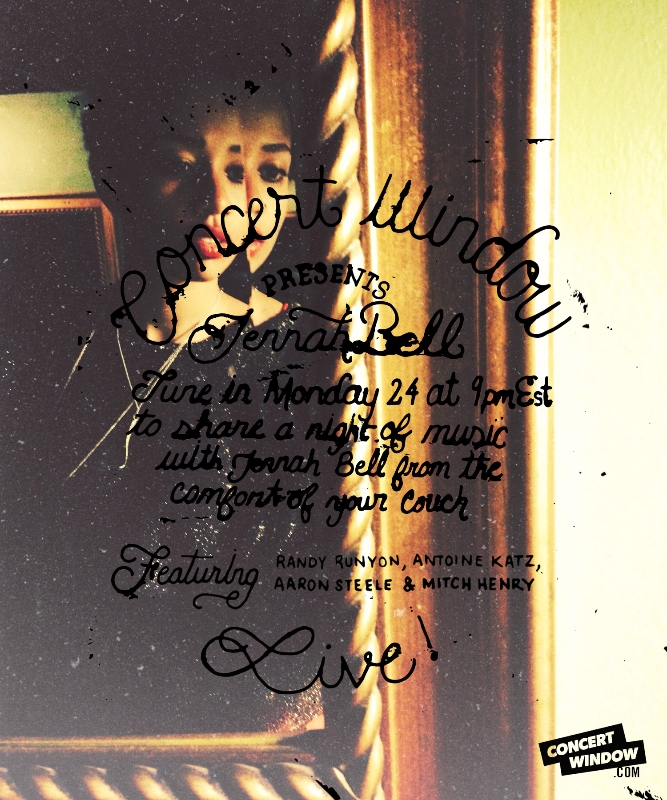 Concert Window
PRESENTS
Jennah Bell
Tune in Monday 24 at 9pm Est
to share a night of music
with Jennah Bell from the
comfort of your Couch
Featuring RANDY RUNYON, ANTOINE KATZ,
AARON STEELE & MITCH HENRY
Live!
CONCERT
WINDOW
.COM